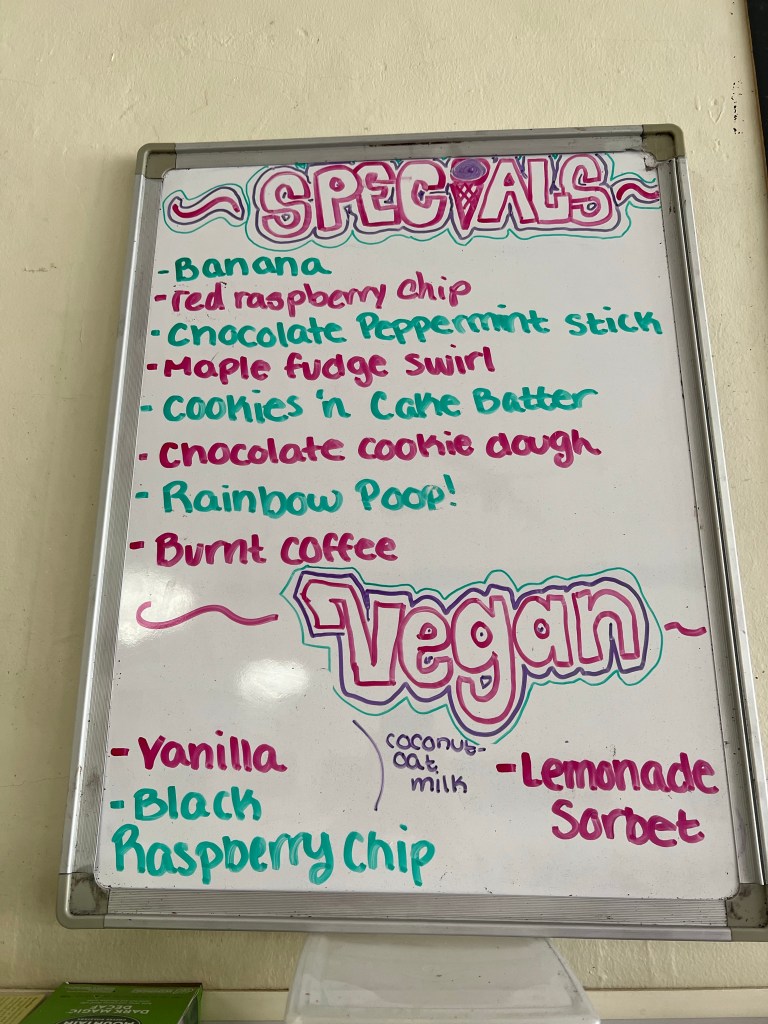 SPECIALS
- Banana
- red raspberry chip
- Chocolate Peppermint stick
- Maple fudge swirl
- Cookies 'n Cake Batter
- Chocolate cookie dough
- Rainbow Poop!
- Burnt coffee
Vegan
- Vanilla
- Black
Raspberry Chip
coconut-
oat
milk
- Lemonade
Sorbet
DARK MAGIC
DECAF
MOUNTAIN